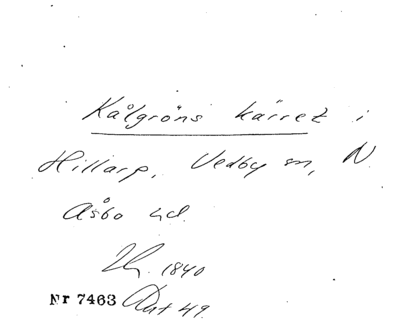 Kålgröns kärret i
Hillarp, Vedby sn, N.
Åsbo hd.
1840
Nr 7463 49.